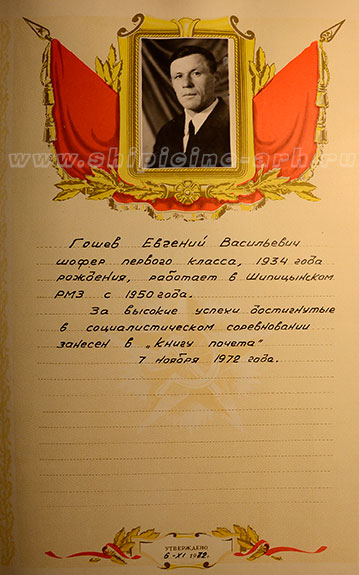 www.shipicino-arh.ru
Гошев Евгений Васильевич
шофер первого класса, 1934 года
рождения, работает в Шипицынском
РМЗ с 1950 года.
За высокие успехи достигнутые
в социалистическом соревновании
занесен в „Книгу почета"
7 ноября 1972 года.
УТВЕРЖДЕНО
6-XI 1972.